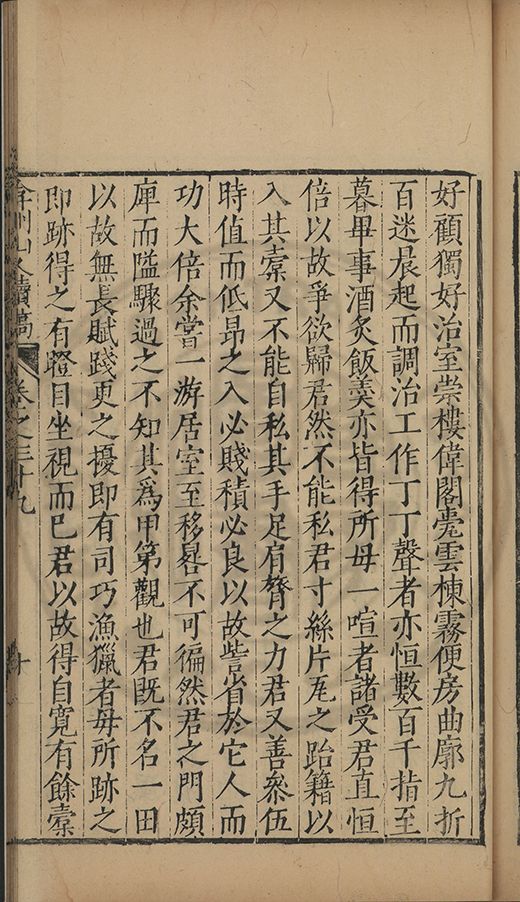 好顧獨好治室崇樓偉閣甍雲棟霧便房曲廓九折
百迷晨起而調治工作丁丁聲者亦恒數百千指至
暮畢事酒炙飯羮亦皆得所毋一喧者諸受君直恒
倍以故爭欲歸君然不能私君寸絲片瓦之貽籍以
入其槖又不能自私其手足肩膂之力君又善叅伍
時值而低昂之入必賤積必良以故訾省於它人而
功大倍余嘗一游居室至移晷不可徧然君之門頗
庳而隘驟過之不知其爲甲第觀也君既不名一田
以故無長賦踐更之擾即有司巧漁獵者毋所跡之
即跡得之有瞪目坐視而巳君以故得自寛有餘槖
弇州山人續稿 卷之三十九 十